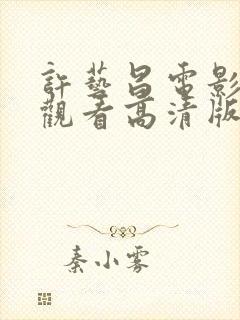 許藝昌電影
觀看高清版
秦小雾